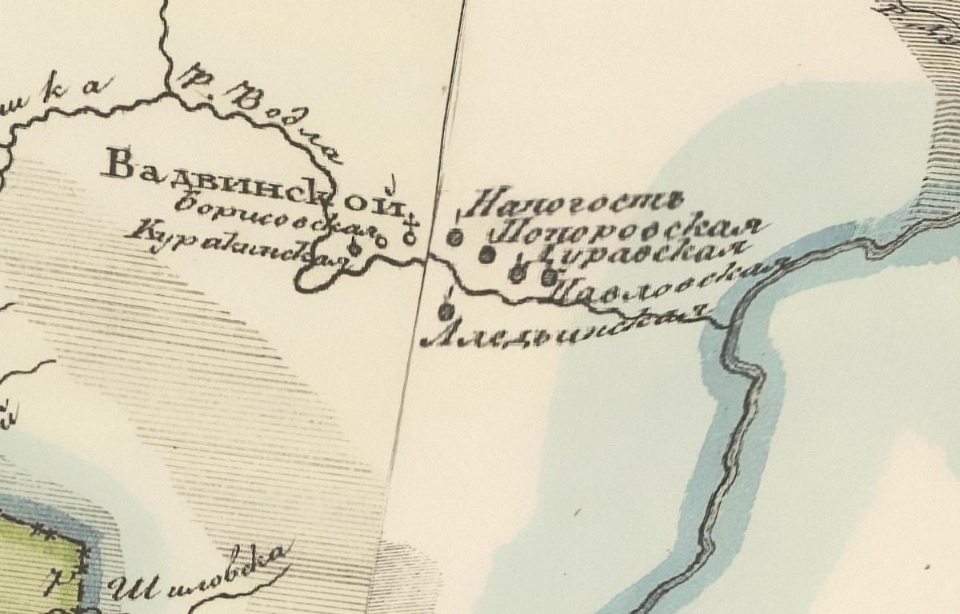 шка
р. Водла
Вадвинской
Борисовская
Куракинская
Напогостъ
Попоровская
Туравская
Павловская
Аледьинская
р. Шиловска